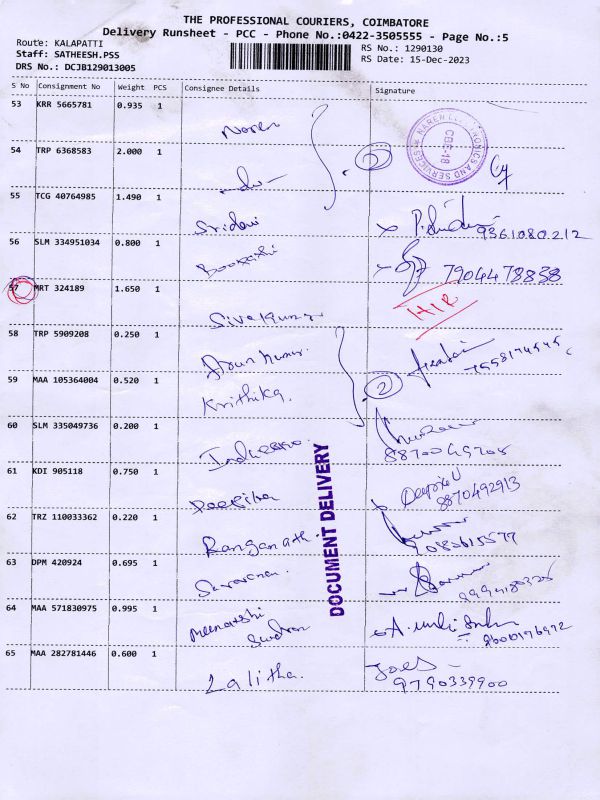 THE PROFESSIONAL COURIERS, COIMBATORE
Delivery Runsheet - PCC - Phone No.:0422-3505555 - Page No.:5
Route: KALAPATTI
RS No.: 1290130
Staff: SATHEESH.PSS
RS Date: 15-Dec-2023
DRS No.: DCJB129013005
S No Consignment No Weight PCS Consignee Details Signature
53 KRR 5665781 0.935 1
Naren
NAREN ELECTRONICS AND SERVICES
CBE-18
54 TRP 6368583 2.000 1
55 TCG 40764985 1.490 1
Sridevi
9361080212
56 SLM 334951034 0.800 1
7904478838
57 MRT 324189 1.650 1
Sivakumar
HIR
58 TRP 5909208 0.250 1
Arun Kumar
7558174545
59 MAA 105364004 0.520 1
Krithika
2
60 SLM 335049736 0.200 1
61 KDI 905118 0.750 1
Deepika
Deepika U
8870492913
62 TRZ 110033362 0.220 1
Ranganath.
63 DPM 420924 0.695 1
Saravanan
64 MAA 571830975 0.995 1
Meenatshi
65 MAA 282781446 0.600 1
Lalitha.
9790339900
DOCUMENT DELIVERY